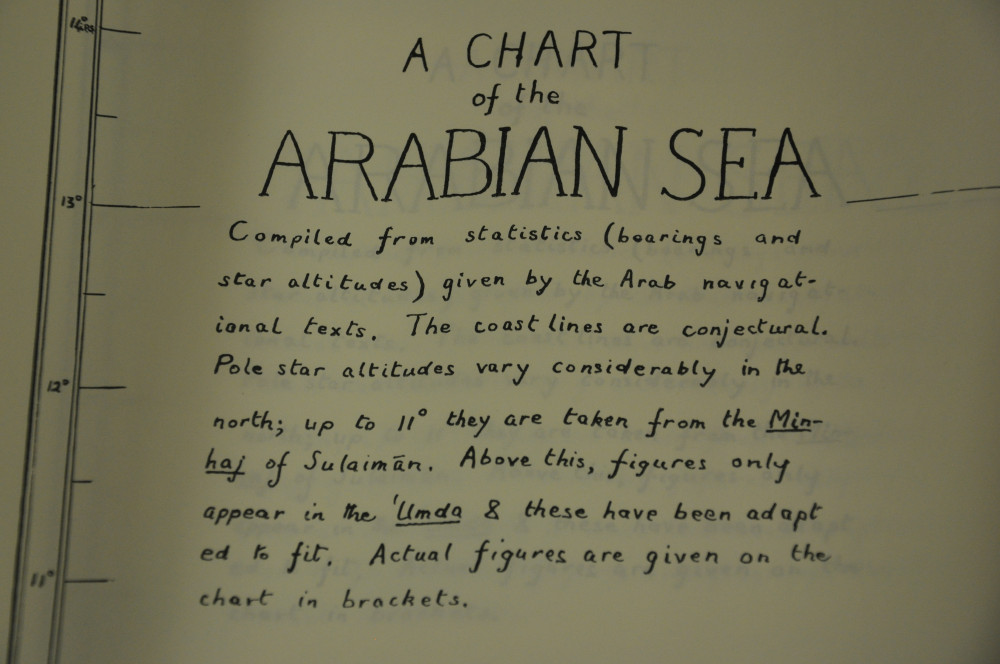 A CHART
of the
ARABIAN SEA
Compiled from statistics (bearings and
star altitudes) given by the Arab navigat-
ional texts. The coast lines are conjectural.
Pole star altitudes vary considerably in the
north; up to 11° they are taken from the Min-
haj of Sulaimān. Above this, figures only
appear in the 'Umda & these have been adapt
ed to fit. Actual figures are given on the
chart in brackets.
13°
12°
11°